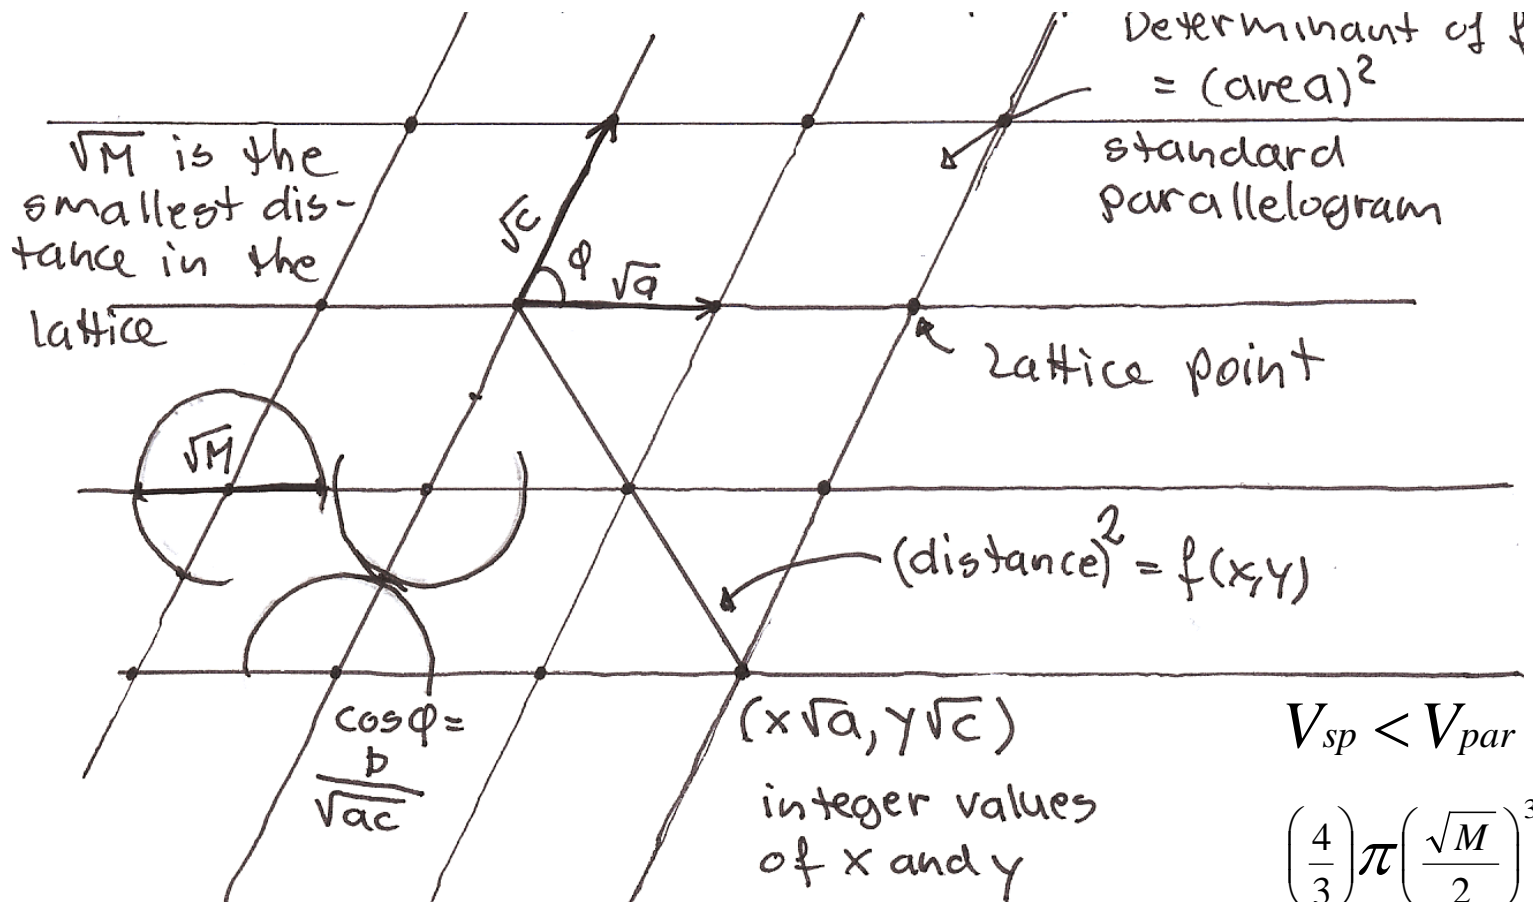 Determinant of f
= (area)²
standard
parallelogram
√M is the
smallest dis-
tance in the
lattice
√c
φ
√a
Lattice point
√M
(distance)² = f(x,y)
cosφ=
b
√ac
(x√a, y√c)
integer values
of x and y
V_sp < V_par
(4/3)π(√M/2)³